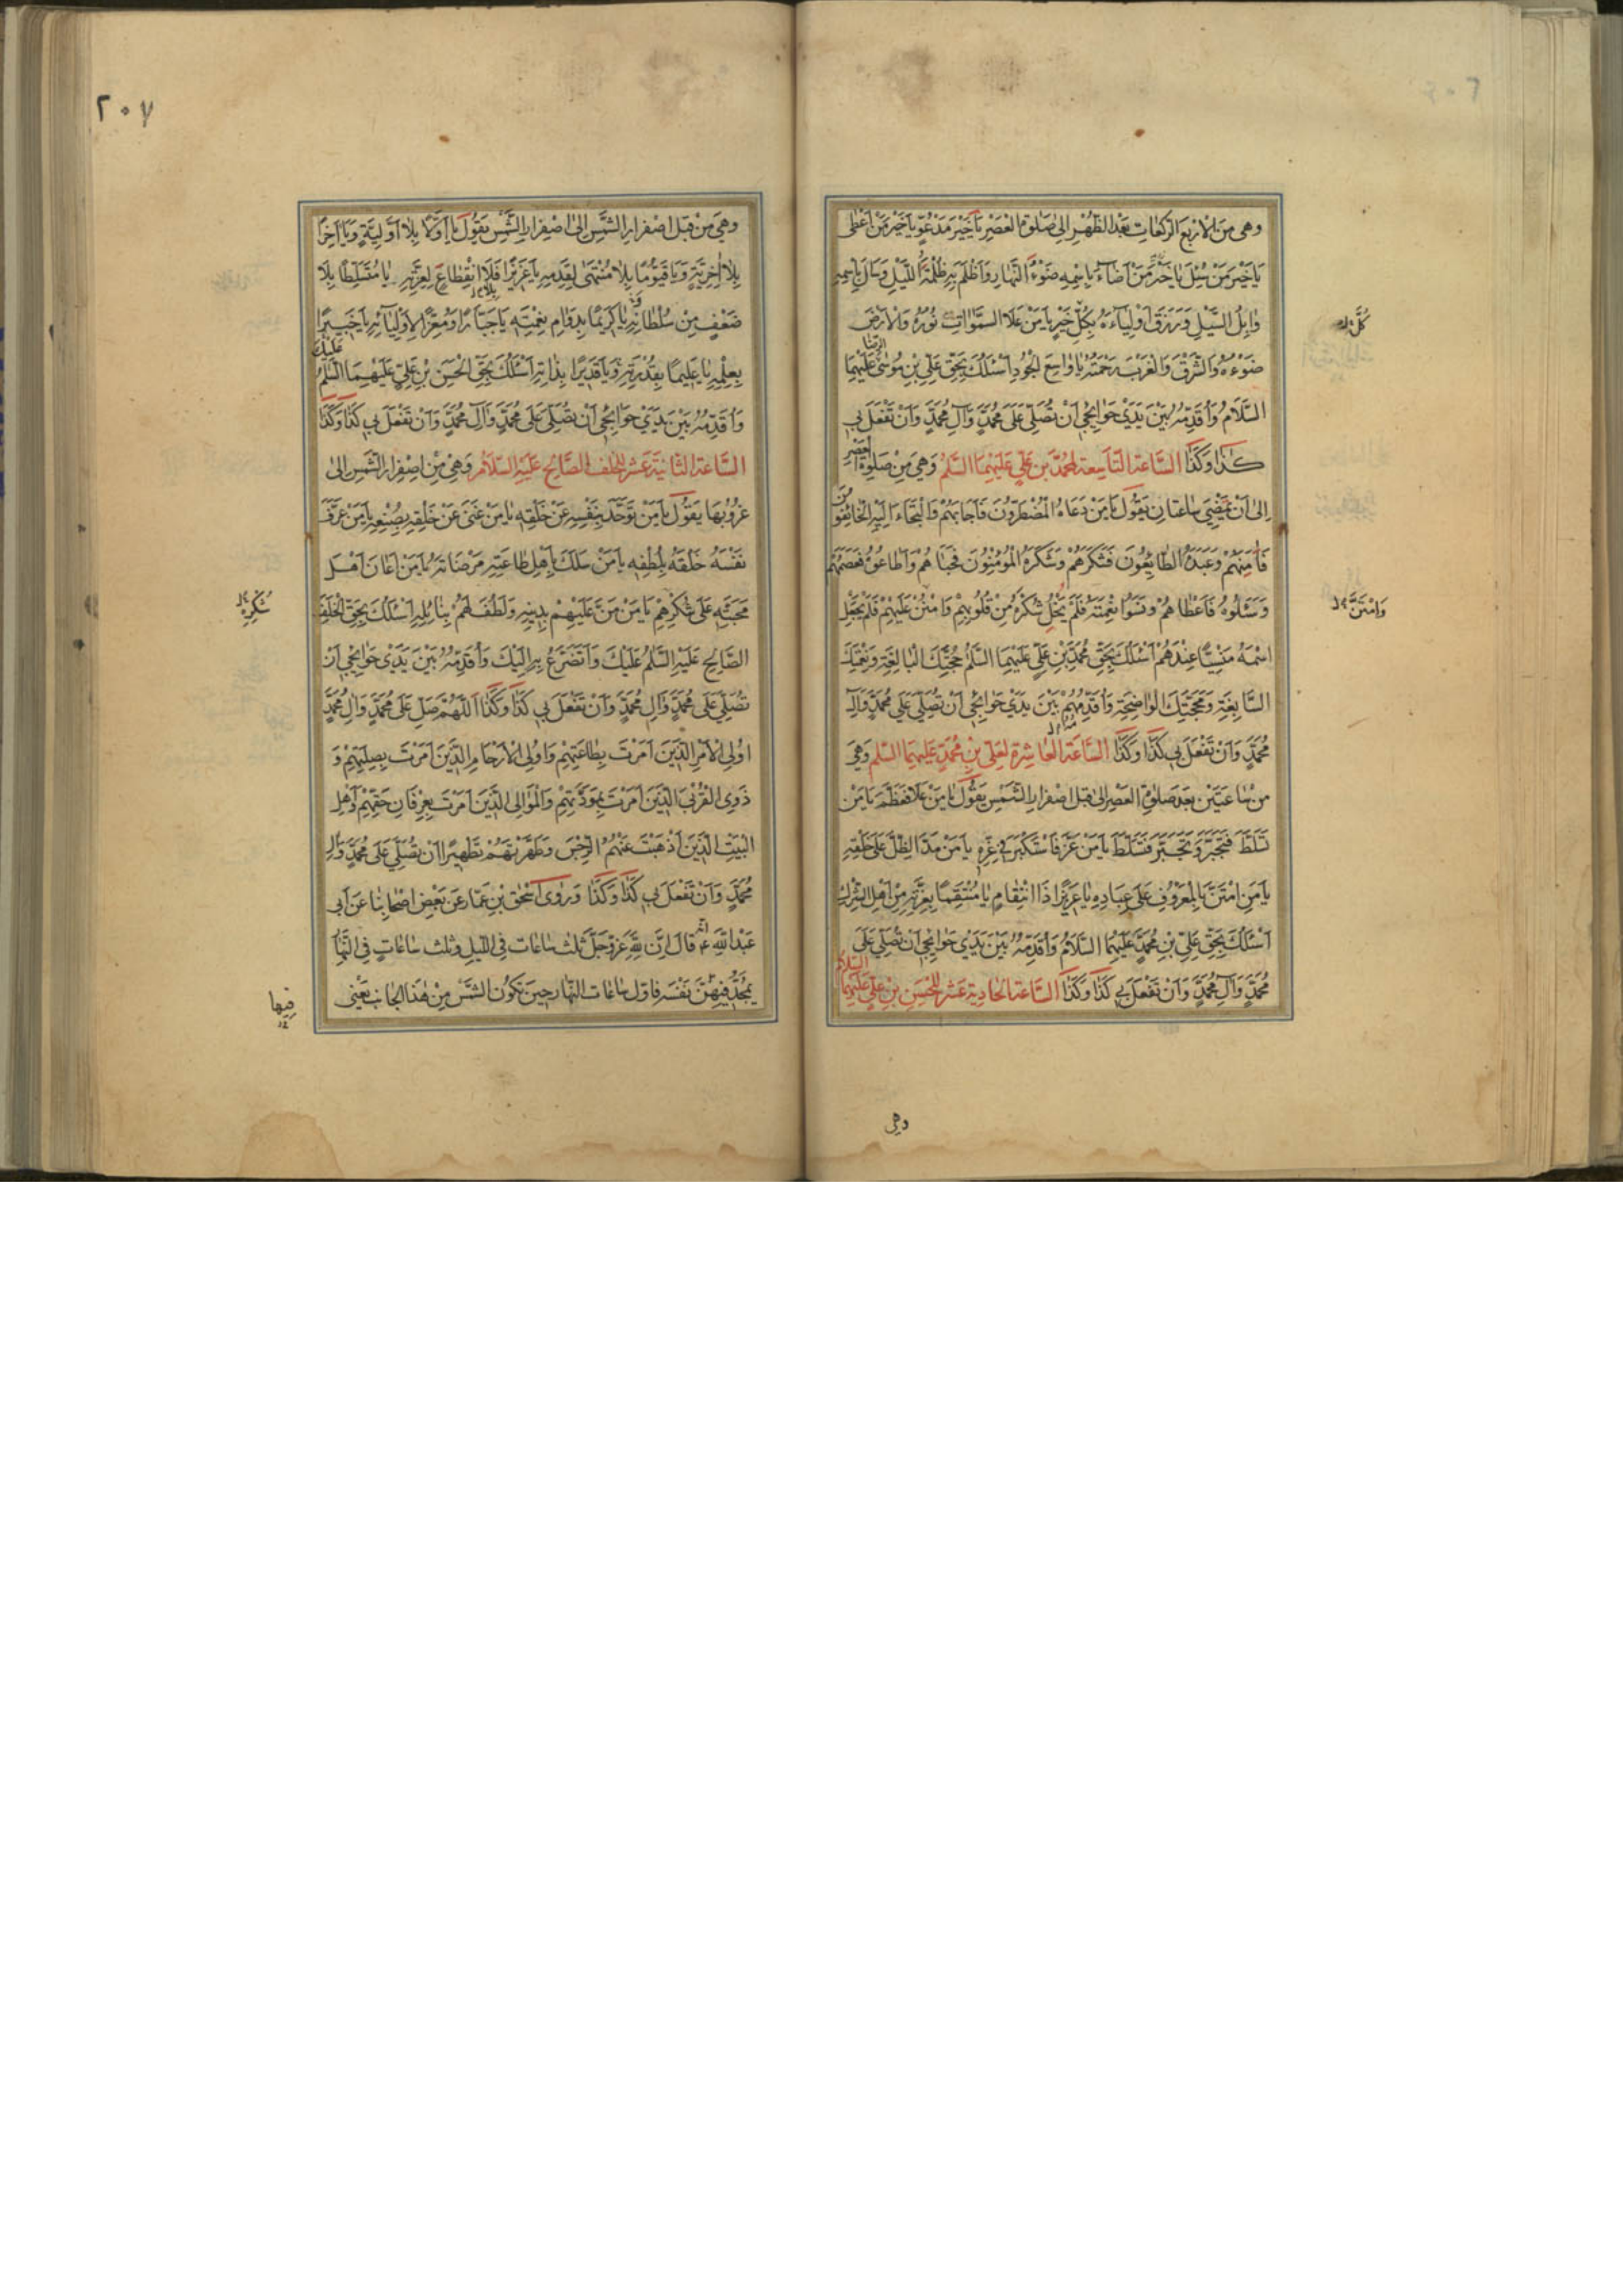 وهي من الاربع الركعات بعد الظهر الى صلوة العصر يا خير مدعو يا خير من اعطى
يا خير من سئل يا خير من اضاء باسمه ضوء النهار واظلم به ظلمة الليل وسال باسمه
وابل السيل ورزق اولياءه بكل خير يا من علا السموات نوره والارض
ضوءه والشرق والغرب رحمته يا واسع الجود اسئلك بحق علي بن موسى الرضا عليهما
السلام واقدمه بين يدي حوائجي ان تصلي على محمد وآل محمد وان تفعل بي
كذا وكذا الساعة التاسعة لمحمد بن علي عليهما السلم وهي من صلوة العصر
الى ان تمضي ساعتان يقول يا من دعاه المضطرون فاجابهم والتجاء اليه الخائفون
فآمنهم وعبده الطايعون فشكرهم وشكره المؤمنون فحباهم واطاعوه فعصمهم
وسئلوه فاعطاهم ونسوا نعمته فلم يخل شكره من قلوبهم وامتن عليهم فلم يجعل
اسمه منسيا عندهم اسئلك بحق محمد بن علي عليهما السلم حجتك البالغة ونعمتك
السابغة ومحجتك الواضحة واقدمهم بين يدي حوائجي ان تصلي على محمد وآل
محمد وان تفعل بي كذا وكذا الساعة العاشرة لعلي بن محمد عليهما السلم وهي
من ساعتين بعد صلوة العصر الى قبل اصفرار الشمس يقول يا من علا فعظم يا من
تسلط فتجبر وتجبر فتسلط يا من عز فاستكبر في عزه يا من مد الظل على خلقه
يا من امتن بالمعروف على عباده يا عزيزا ذا انتقام يا منتقما بعزته من اهل الشرك
اسئلك بحق علي بن محمد عليهما السلام واقدمه بين يدي حوائجي ان تصلي على
محمد وآل محمد وان تفعل بي كذا وكذا الساعة الحادية عشر للحسن بن علي عليهما السلام
كل
وامتن
وهي
٢٠٧
وهي من قبل اصفرار الشمس الى اصفرار الشمس يقول يا اولا بلا اولية ويا آخرا
بلا آخرية ويا قيوما بلا منتهى لقدمه يا عزيزا فلا انقطاع لعزته يا متسلطا بلا
ضعف من سلطانه يا كريما بدوام نعمته يا جبارا ومعزا لاوليائه يا خبيرا
بعلمه يا عليما بقدرته ويا قديرا بذاته اسئلك بحق الحسن بن علي عليهما السلم عليك
واقدمه بين يدي حوائجي ان تصلي على محمد وآل محمد وان تفعل بي كذا وكذا
الساعة الثانية عشر للخلف الصالح عليه السلام وهي من اصفرار الشمس الى
غروبها يقول يا من توحد بنفسه عن خلقه يا من غني عن خلقه بصنعه يا من عرف
نفسه خلقه بلطفه يا من سلك باهل طاعته مرضاته يا من اعان اهل
محبته على شكرهم يا من من عليهم بدينه ولطف لهم بنائله اسئلك بحق الخلف
الصالح عليه السلم عليك واتضرع به اليك واقدمه بين يدي حوائجي ان
تصلي على محمد وآل محمد وان تفعل بي كذا وكذا اللهم صل على محمد وآل محمد
اولى الامر الذين امرت بطاعتهم واولى الارحام الذين امرت بصلتهم و
ذوى القربى الذين امرت بمودتهم والموالى الذين امرت بعرفان حقهم واهل
البيت الذين اذهبت عنهم الرجس وطهرتهم تطهيرا ان تصلي على محمد وآل
محمد وان تفعل بي كذا وكذا وروى اسحق بن عمار عن بعض اصحابنا عن ابى
عبد الله ع انه قال ان لله عز وجل ثلث ساعات في الليل وثلث ساعات في النهار
يمجد فيهن نفسه فاول ساعات النهار حين تكون الشمس من هذا الجانب يعنى
شكره
فيها